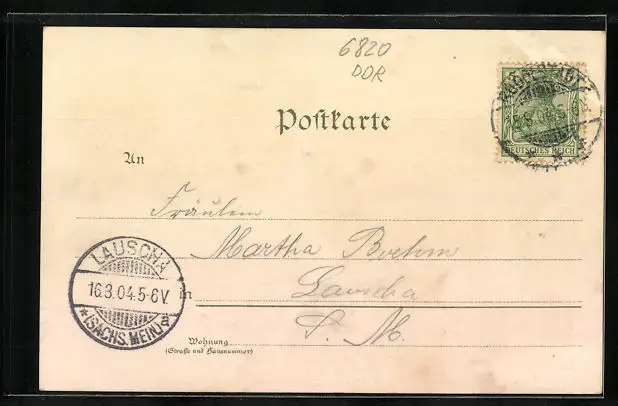 6820
DDR
Postkarte
DEUTSCHES REICH
An
Fräulein
Martha Boehm
in Lauscha
S. M.
Wohnung
(Straße und Hausnummer)
LAUSCHA
16.3.04.5-6V.
*(SACHS.MEIN.)a